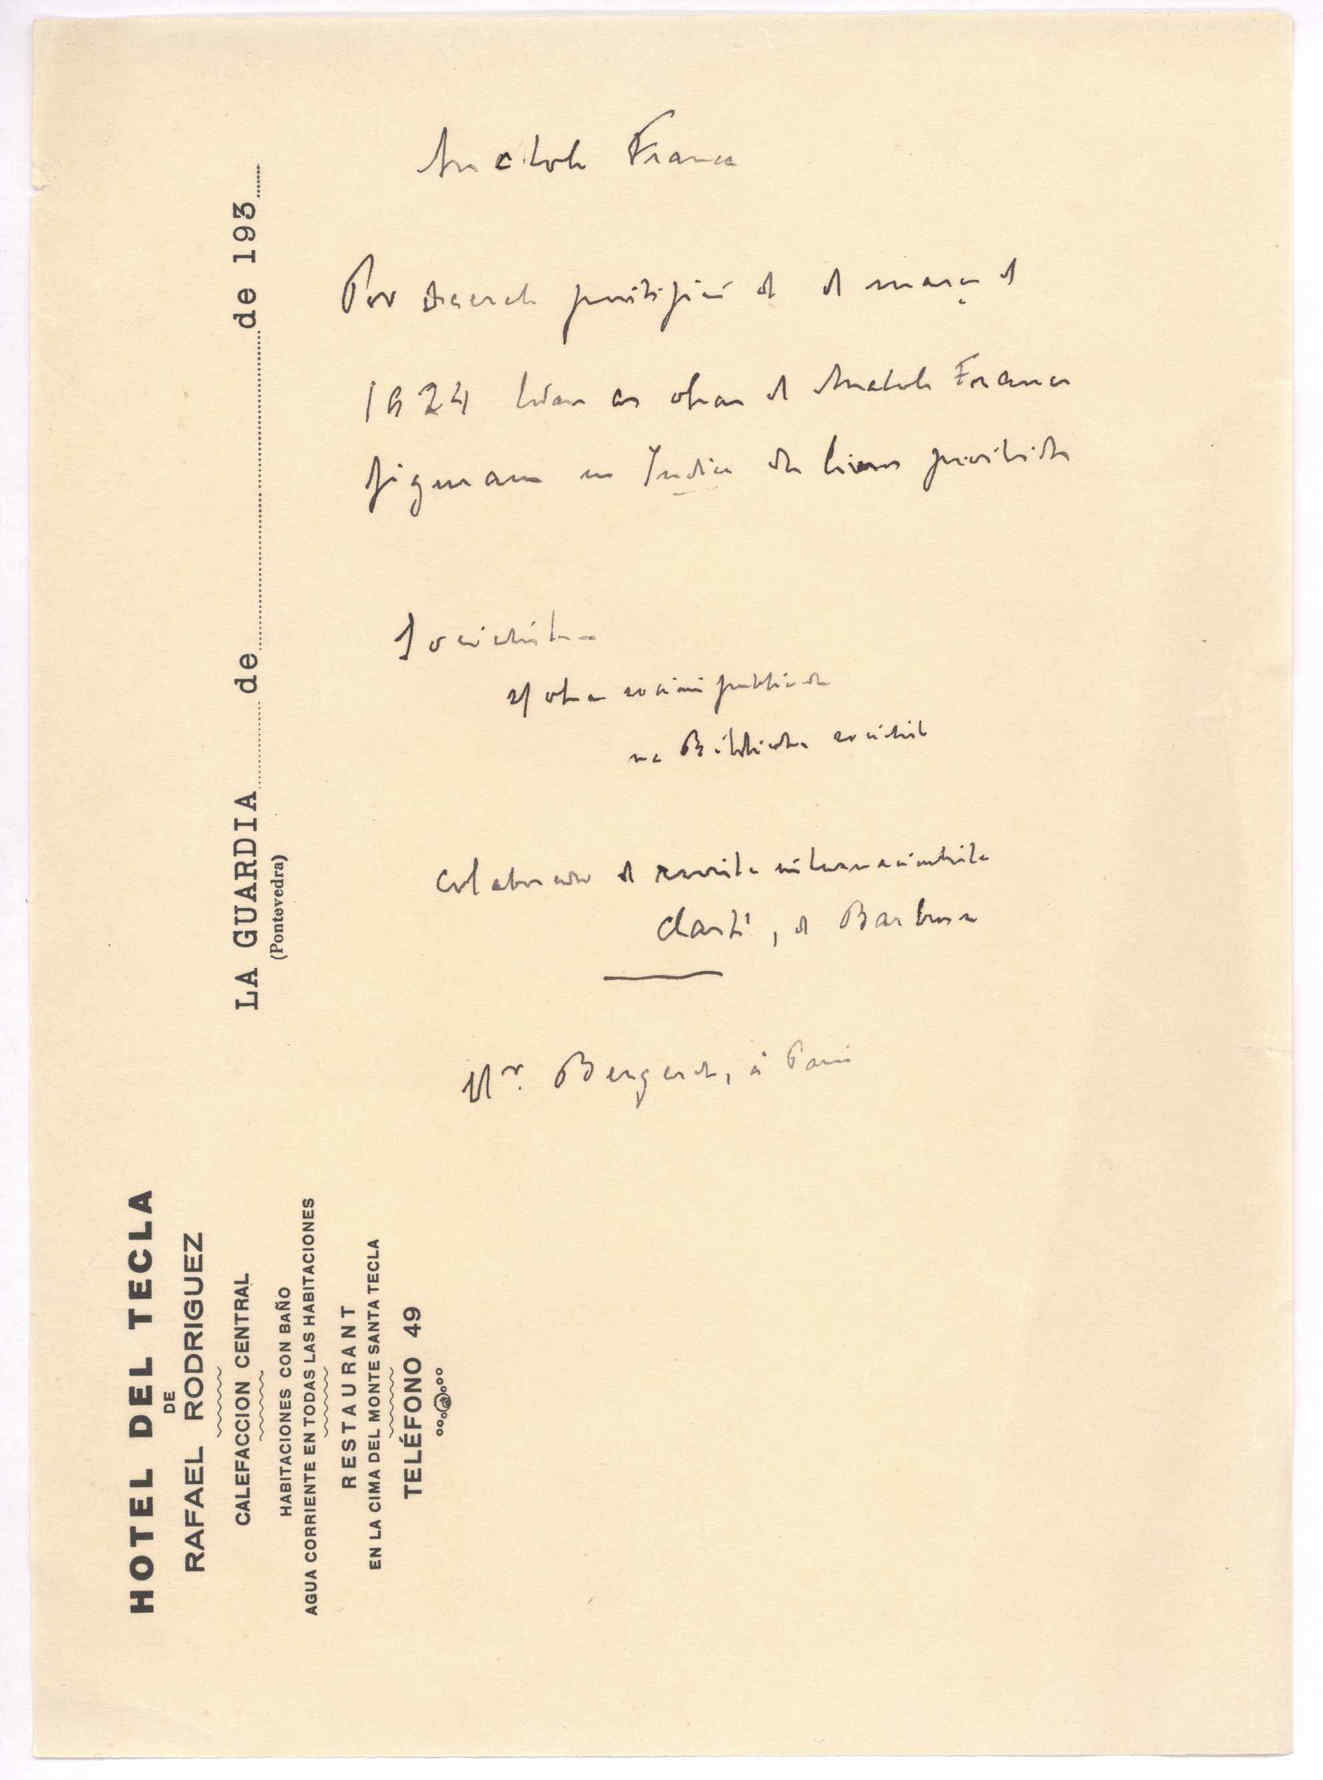 Anatole France
Por decreto pontifício de de março de
1924 todas as obras de Anatole France
figuram no Index de livros proibidos
Socialista
na Biblioteca socialista
Colaborador de revista internacionalista
Clarté, de Barbusse
Mr. Bergeret, à Paris
LA GUARDIA de de 193
(Pontevedra)
HOTEL DEL TECLA
DE
RAFAEL RODRIGUEZ
CALEFACCION CENTRAL
HABITACIONES CON BAÑO
AGUA CORRIENTE EN TODAS LAS HABITACIONES
RESTAURANT
EN LA CIMA DEL MONTE SANTA TECLA
TELÉFONO 49